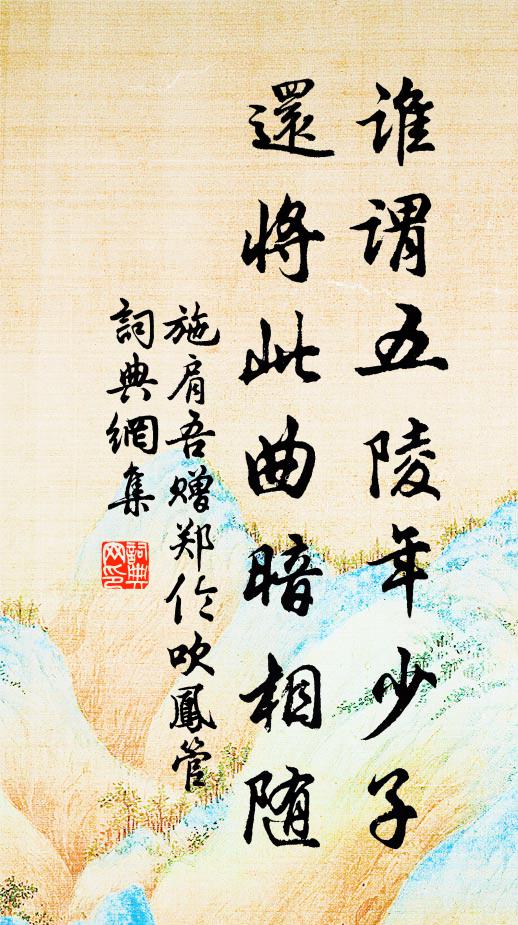 谁谓五陵年少子
還将此曲暗相随
施肩吾赠郑伦吹鳳管
詞典網集
詞典网印